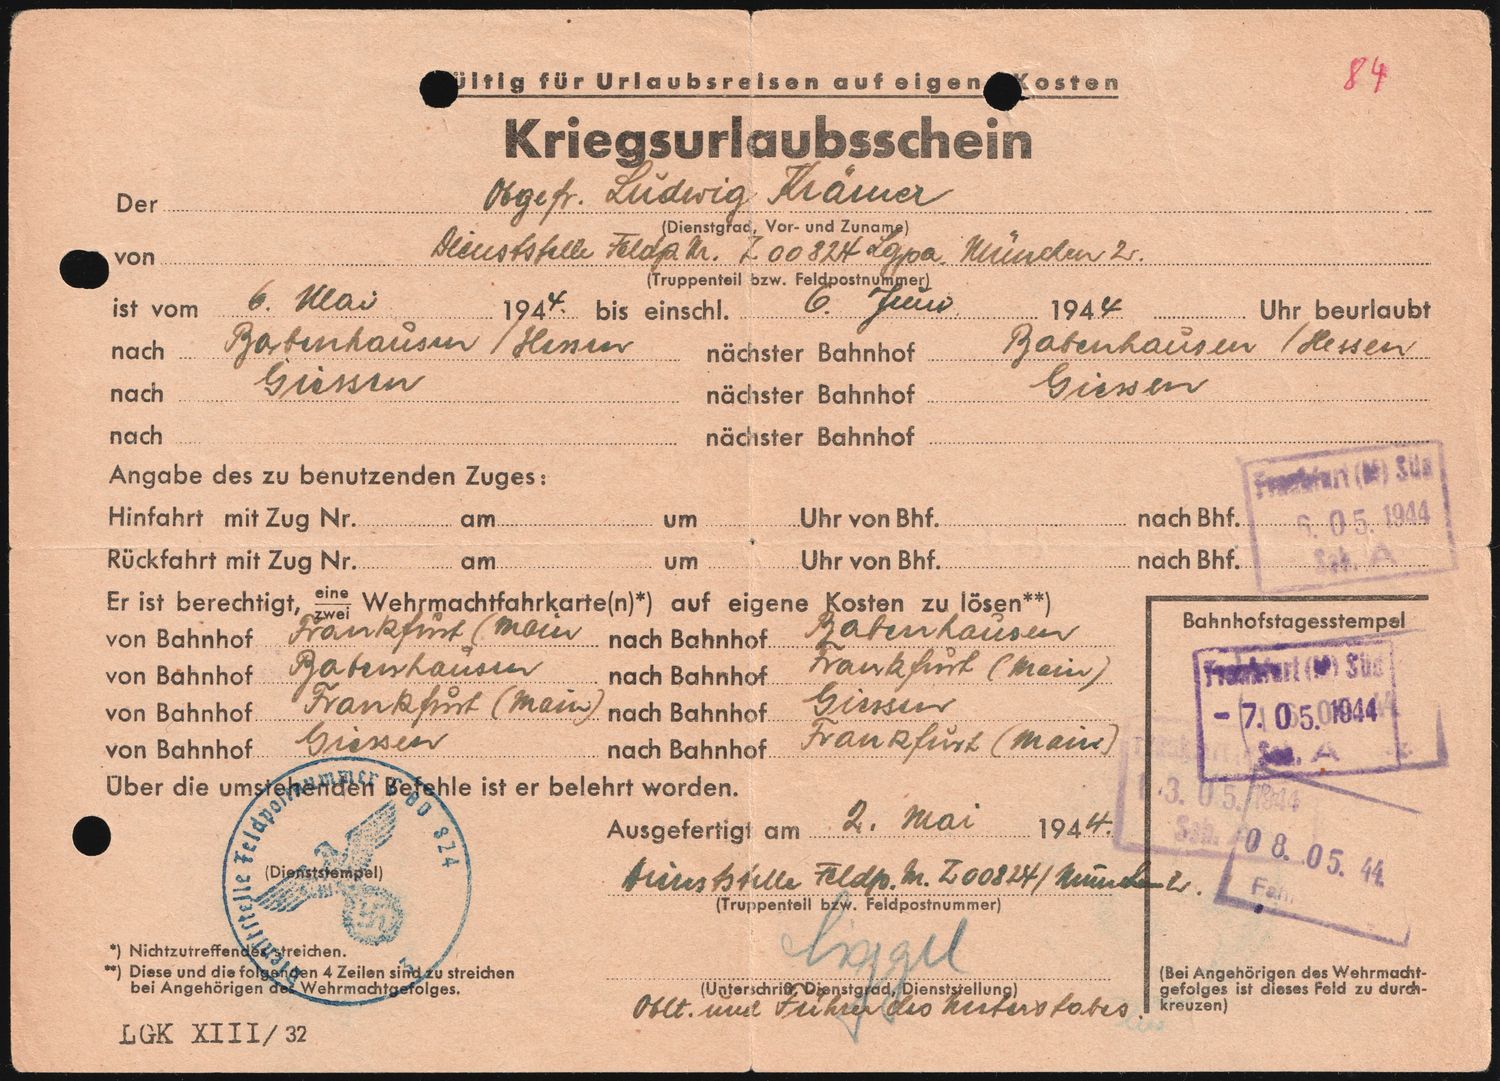 84
ültig für Urlaubsreisen auf eigen Kosten
Kriegsurlaubsschein
Der Obgefr. Ludwig Krämer
(Dienstgrad, Vor- und Zuname)
von Dienststelle Feldp. Nr. Z 00824 Lgpa. München 2.
(Truppenteil bzw. Feldpostnummer)
ist vom 6. Mai 1944. bis einschl. 6. Juni 1944 Uhr beurlaubt
nach Babenhausen / Hessen nächster Bahnhof Babenhausen / Hessen
nach Giessen nächster Bahnhof Giessen
nach nächster Bahnhof
Angabe des zu benutzenden Zuges:
Hinfahrt mit Zug Nr. am um Uhr von Bhf. nach Bhf.
Rückfahrt mit Zug Nr. am um Uhr von Bhf. nach Bhf.
Frankfurt (M) Süd
6. 05. 1944
A
Er ist berechtigt, eine/zwei Wehrmachtfahrkarte(n)*) auf eigene Kosten zu lösen**)
von Bahnhof Frankfurt (Main nach Bahnhof Babenhausen
von Bahnhof Babenhausen nach Bahnhof Frankfurt (Main)
von Bahnhof Frankfurt (Main) nach Bahnhof Giessen
von Bahnhof Giessen nach Bahnhof Frankfurt (Main)
Bahnhofstagesstempel
Frankfurt (M) Süd
- 7. 05. 1944
A
3. 05. 1944
08. 05. 44
Über die umstehenden Befehle ist er belehrt worden.
Ausgefertigt am 2. Mai 1944.
Dienststelle Feldpostnummer 00 824
(Dienststempel)
Dienststelle Feldp. Nr. Z 00824 / München 2.
(Truppenteil bzw. Feldpostnummer)
*) Nichtzutreffendes streichen.
**) Diese und die folgenden 4 Zeilen sind zu streichen
bei Angehörigen des Wehrmachtgefolges.
(Unterschrift, Dienstgrad, Dienststellung)
Oblt. und Führer des Unterstabes.
(Bei Angehörigen des Wehrmacht-
gefolges ist dieses Feld zu durch-
kreuzen)
LGK XIII/32